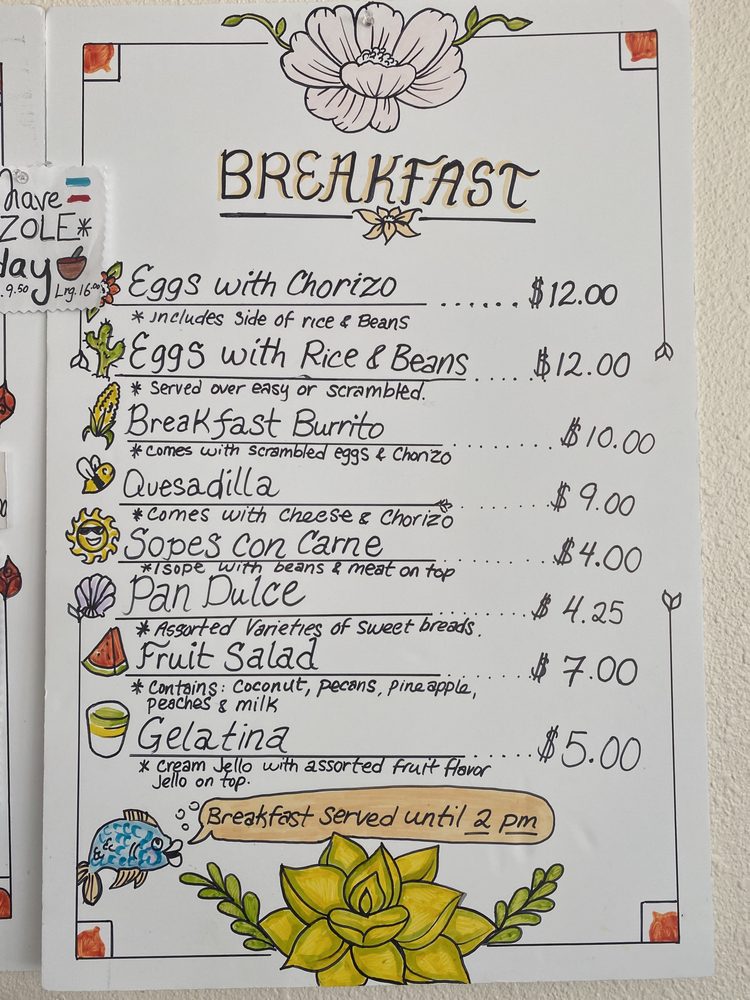 have
ZOLE*
day
.9.50 Lrg.16.00
BREAKFAST
Eggs with Chorizo ...... $12.00
* includes side of rice & Beans
Eggs with Rice & Beans ..... $12.00
* Served over easy or scrambled.
Breakfast Burrito ........ $10.00
*comes with scrambled eggs & Chorizo
Quesadilla ........ $9.00
*Comes with cheese & Chorizo
Sopes con Carne ........ $4.00
*1 sope with beans & meat on top
Pan Dulce ........ $4.25
* Assorted Varieties of sweet breads.
Fruit Salad ........ $7.00
* Contains: coconut, pecans, pineapple,
peaches & milk
Gelatina ...... $5.00
* Cream Jello with assorted fruit flavor
Jello on top.
Breakfast served until 2 pm